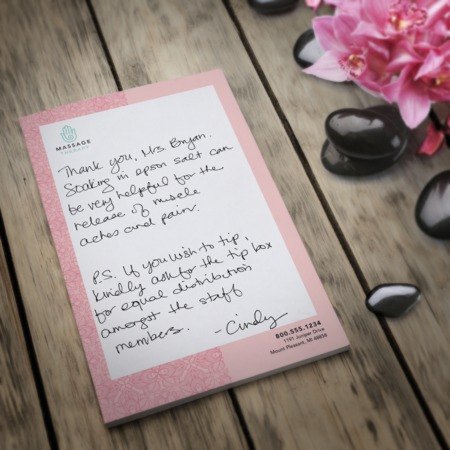 MASSAGE
THERAPY
Thank you, Mrs. Bryan.
Soaking in epson salt can
be very helpful for the
release of muscle
aches and pain.
P.S. If you wish to tip,
kindly ask for the 'tip box'
for equal distribution
amongst the staff
members. -Cindy
800.555.1234
1191 Juniper Drive
Mount Pleasant, MI 48858